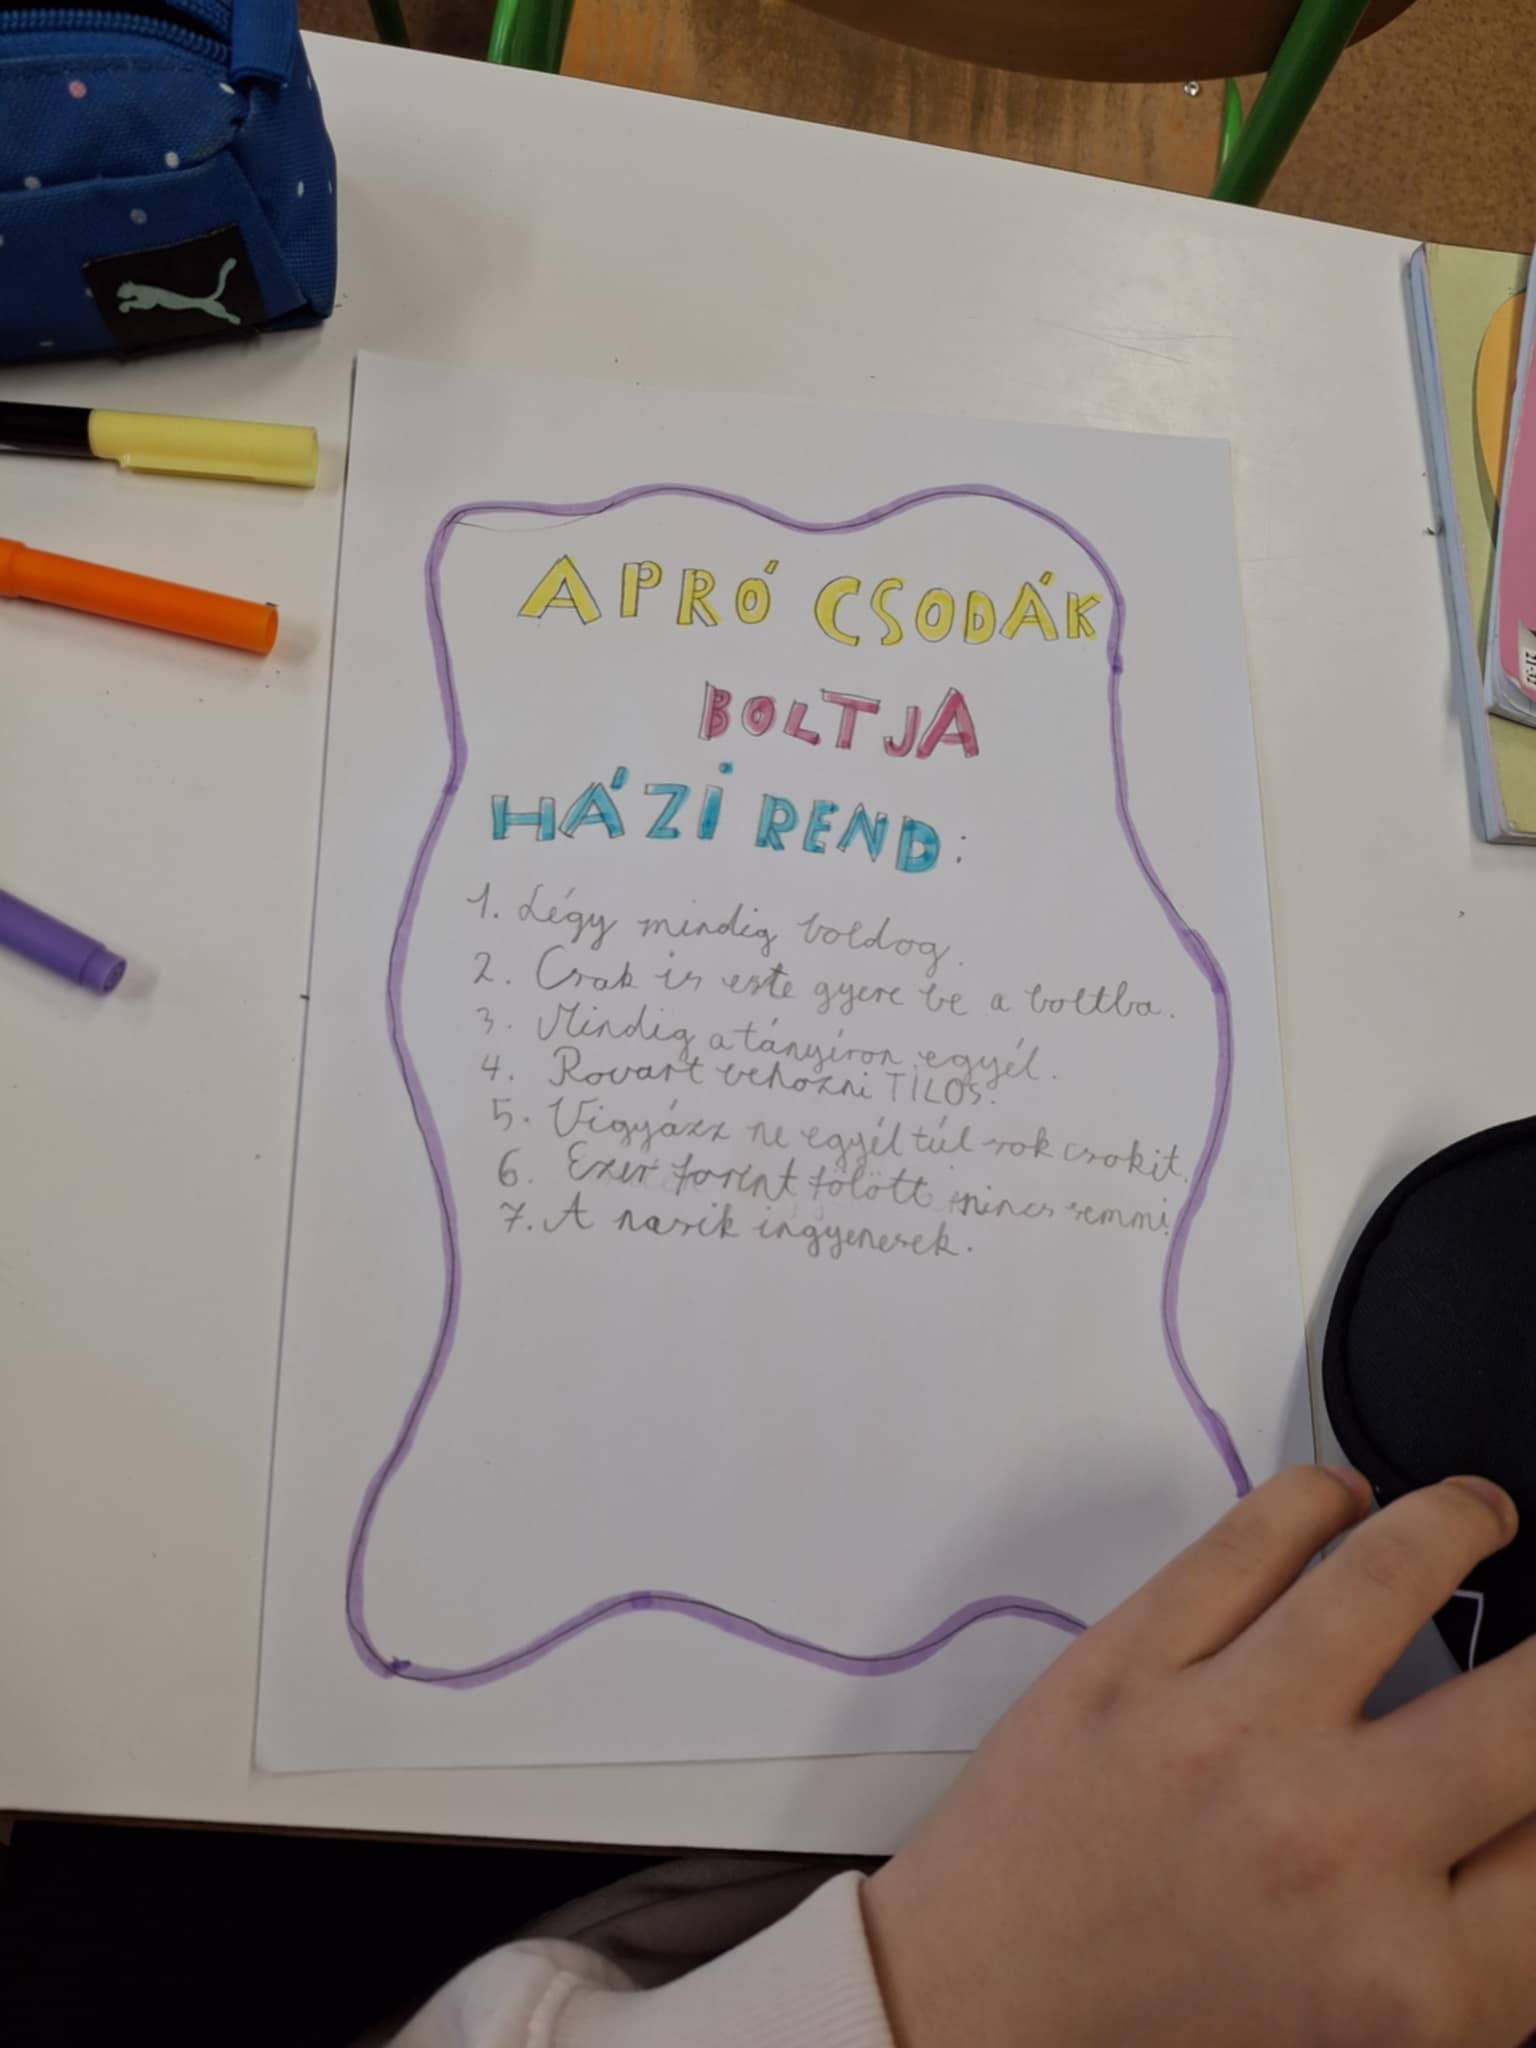 APRÓ CSODÁK
BOLTJA
HÁZI REND:
1. Légy mindig boldog.
2. Csak is este gyere be a boltba.
3. Mindig a tányíron egyél.
4. Rovart behozni TILOS.
5. Vigyázz ne egyél túl sok csokit.
6. Ezer forint fölött nincs semmi.
7. A nasik ingyenesek.